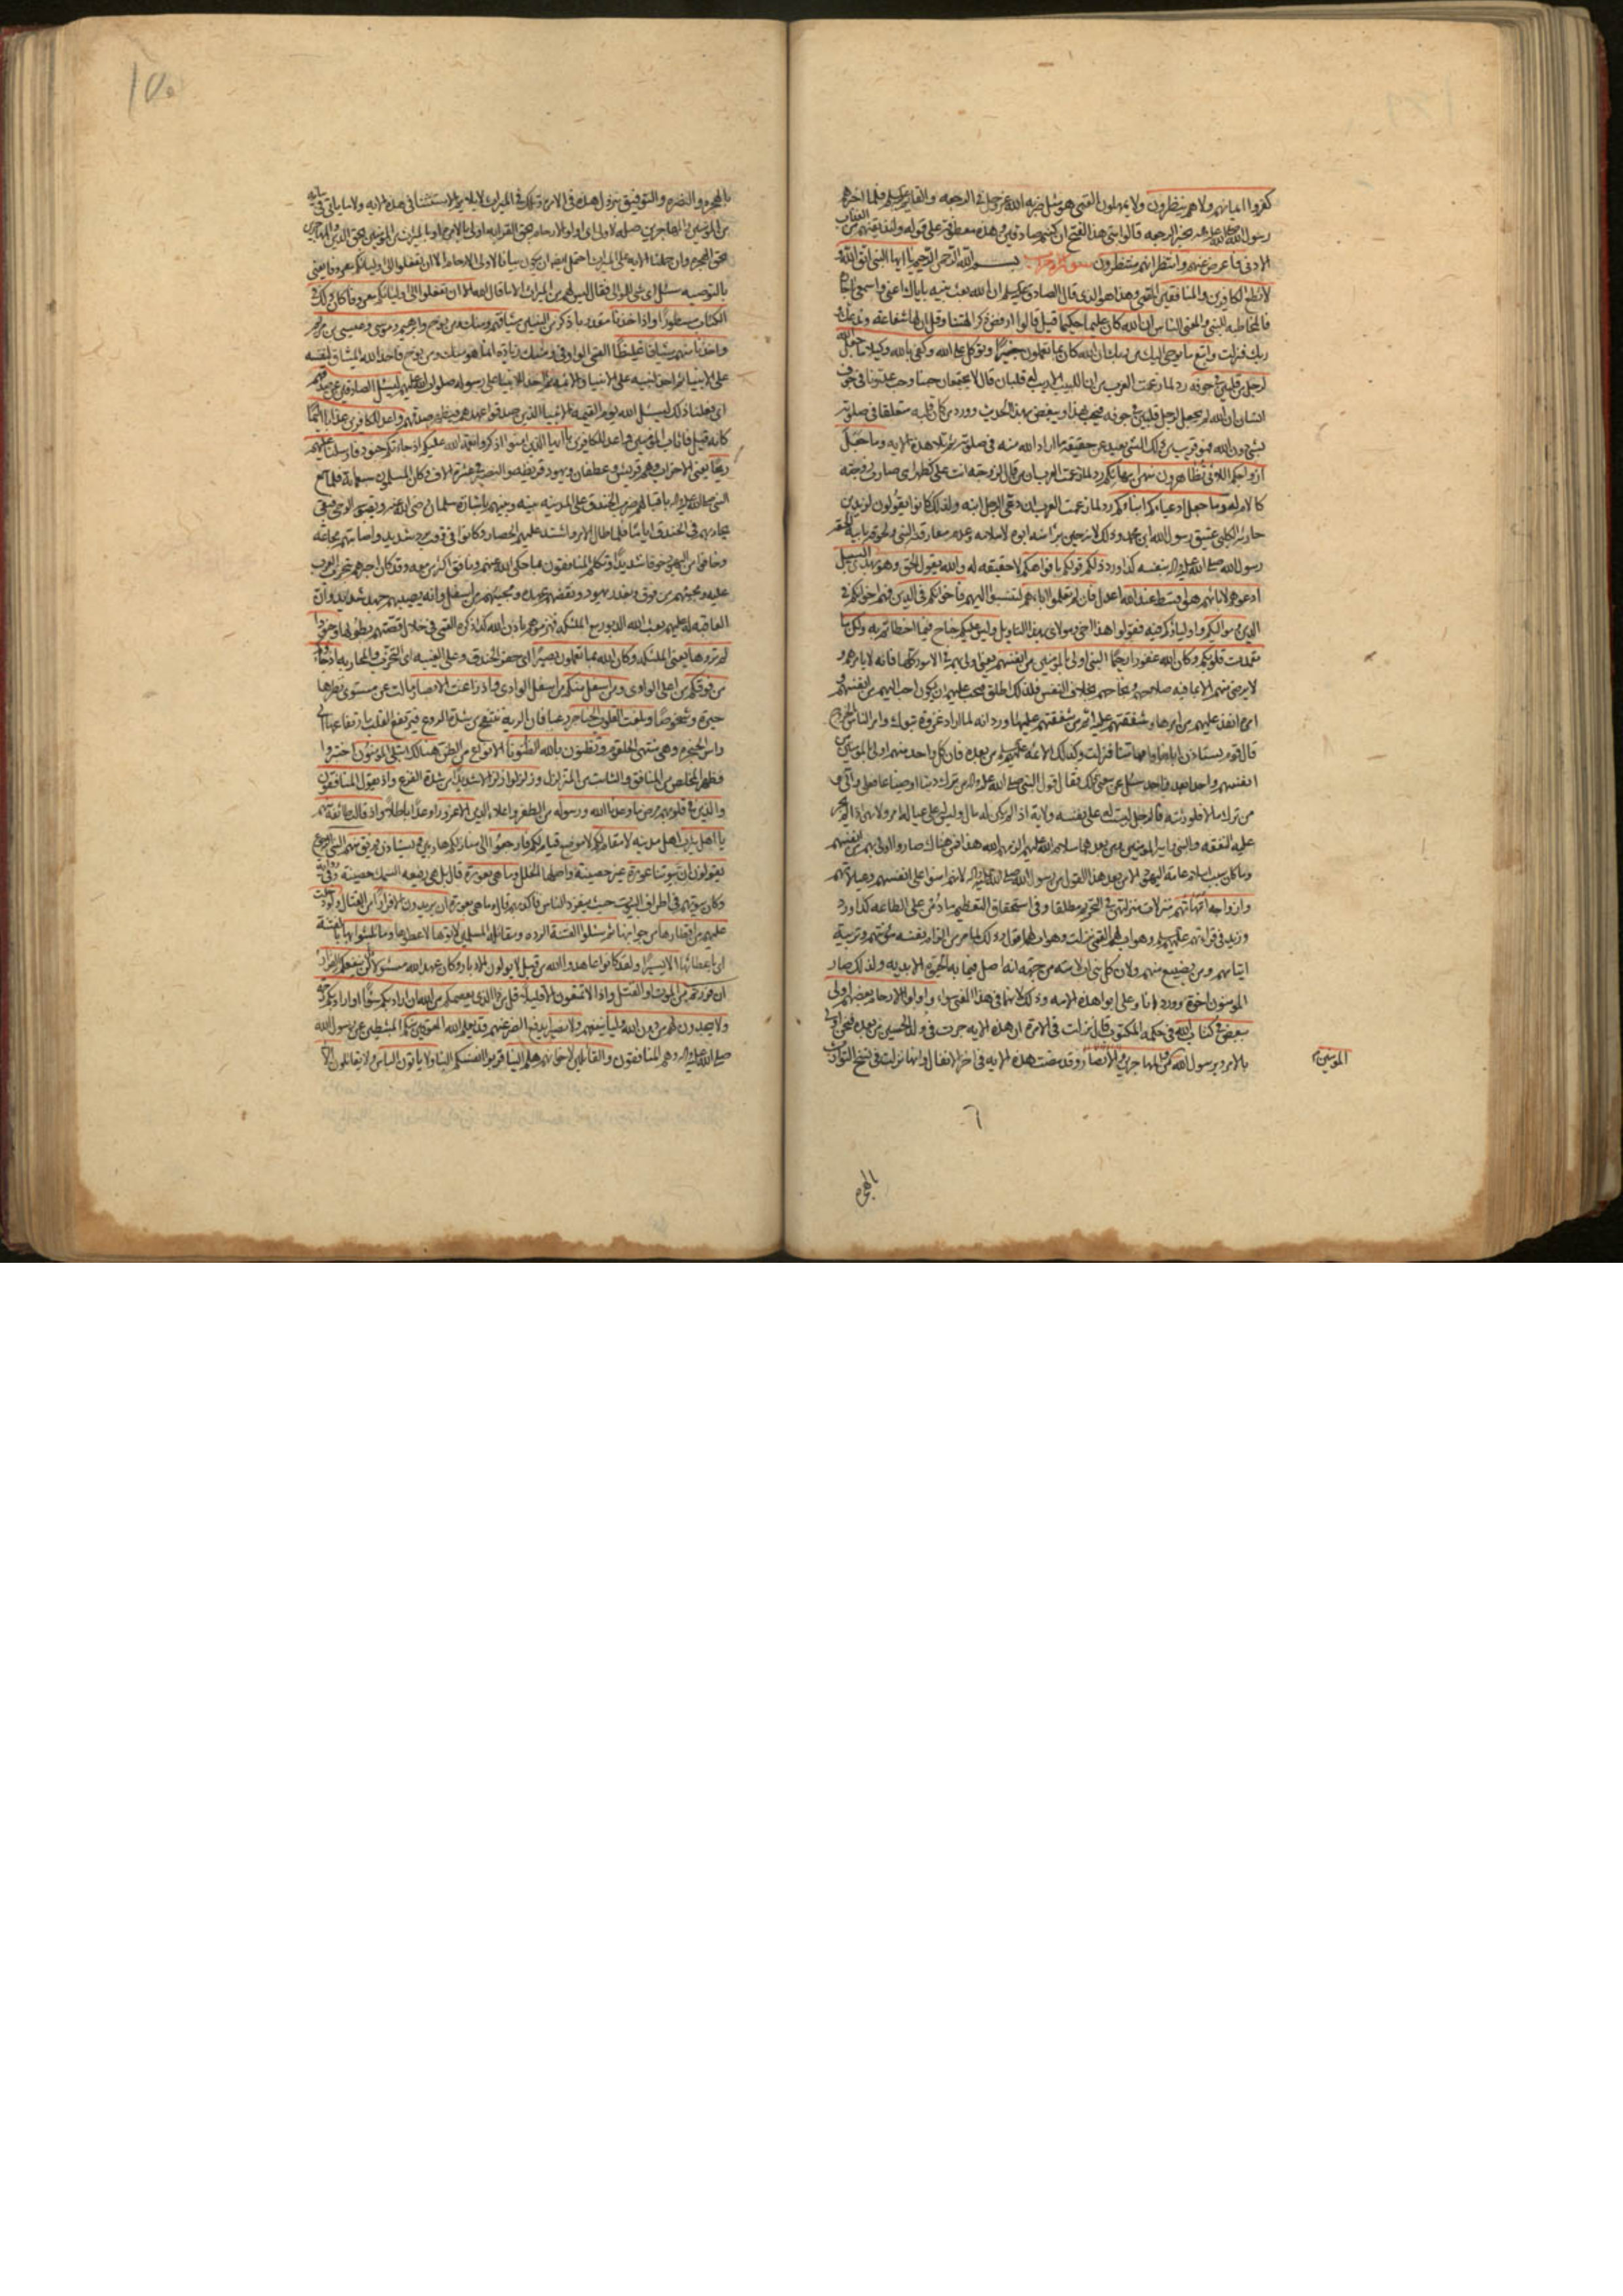 كفروا ايمانهم ولا هم ينظرون ولا يمهلون القمي هو مثل ضربه الله عز وجل في الرجعة والقائم عليه السلم فلما اخبرهم
رسول الله صلى الله عليه واله بخبر الرجعة قالوا متى هذا الفتح ان كنتم صادقين وهذه معطوفة على قوله ولنذيقنهم من العذاب
الادنى فاعرض عنهم وانتظر انهم منتظرون بسم الله الرحمن الرحيم يا ايها النبي اتق الله و
لا تطع الكافرين والمنافقين القمي وهذا هو الذي قال الصادق عليه السلم ان الله بعث نبيه باياك اعني واسمعي يا جارة
فالمخاطبة للنبي والمعنى للناس ان الله كان عليما حكيما قيل قالوا ارفض ذكر الهتنا وقل ان لها شفاعة وندعك و
ربك فنزلت واتبع ما يوحى اليك من ربك ان الله كان بما تعملون خبيرا وتوكل على الله وكفى بالله وكيلا ما جعل الله
لرجل من قلبين في جوفه رد لما زعمت العرب من ان اللبيب الاريب له قلبان قال لا يجتمع ان حبنا وحب عدونا في جوف
انسان ان الله لم يجعل لرجل قلبين في جوفه فيحب بهذا ويبغض بهذا الحديث وورد من كان قلبه متعلقا في صلوته
بشيء دون الله فهو قريب من ذلك الشيء بعيد عن حقيقة ما اراد الله منه في صلوته ثم تلا هذه الاية وما جعل
ازواجكم اللائي تظاهرون منهن امهاتكم رد لما زعمت العرب ان من قال لزوجته انت علي كظهر امي صارت زوجته
كالام له وما جعل ادعياءكم ابناءكم رد لما زعمت العرب ان دعي الرجل ابنه ولذلك كانوا يقولون لزيد بن
حارثة الكلبي عتيق رسول الله ابن محمد وذلك لانه حين
رسول الله صلى الله عليه واله بنفسه كذا ورد ذلكم قولكم بافواهكم لا حقيقة له والله يقول الحق وهو يهدي السبيل
ادعوهم لابائهم هو اقسط عند الله اعدل فان لم تعلموا اباءهم لتنسبوا اليهم فاخوانكم في الدين فهم اخوانكم في
الدين ومواليكم واولياؤكم فيه فقولوا هذا اخي ومولاي بهذا التاويل وليس عليكم جناح فيما اخطاتم به ولكن ما
تعمدت قلوبكم وكان الله غفورا رحيما النبي اولى بالمؤمنين من انفسهم يعني اولى بهم في الامور كلها فانه لا يامرهم و
لا يرضى منهم الا بما فيه صلاحهم ونجاحهم بخلاف النفس فلذلك اطلق فيجب عليهم ان يكون احب اليهم من انفسهم و
امره انفذ عليهم من امرها وشفقتهم عليه اتم من شفقتهم عليها ورد انه لما اراد غزوة تبوك وامر الناس بالخروج
قال قوم نستاذن اباءنا وامهاتنا فنزلت وكذلك الائمة عليهم السلم من بعده فان كل واحد منهم اولى بالمؤمنين من
انفسهم واحدا بعد واحد سئل عن معنى ذلك فقال قول النبي صلى الله عليه واله من ترك دينا او ضياعا فعلي والي و
من ترك مالا فلورثته فالرجل ليست له على نفسه ولاية اذا لم يكن له مال وليس له على عياله امر ولا نهي اذا لم يجر
عليه النفقة والنبي وامير المؤمنين ومن بعدهما سلام الله عليهم الزمهم الله هذا فمن هناك صاروا اولى بهم من انفسهم
وما كان سبب اسلام عامة اليهود الا من بعد هذا القول من رسول الله صلى الله عليه واله لانهم امنوا على انفسهم وعيالاتهم
وازواجه امهاتهم منزلات منزلتهن في التحريم مطلقا وفي استحقاق التعظيم ما دمن على الطاعة كذا ورد
وزيد في قراءتهم عليهم السلم وهو اب لهم القمي نزلت وهو اب لهم
ولان كل نبي اب لامته من جهة انه اصل فيما به الحيوة الابدية ولذلك صار
المؤمنون اخوة وورد انا وعلي ابوا هذه الامة وذلك لانهما في هذا المعنى سواء واولوا الارحام بعضهم اولى
ببعض في كتاب الله في حكمه المكتوب قال نزلت في الامرة ان هذه الاية جرت في ولد الحسين من بعده فنحن اولى
بالامر وبرسول الله من المهاجرين والانصار وقد مضت هذه الاية في اخر الانفال وانها نزلت في نسخ التوارث
المؤمنين و
٦
بالهجرة
١٥٠
بالهجرة والنصرة والتوفيق بنزول هذه في الامرة وتلك في الميراث لا يلائم الاستثناء في هذه الاية ولا ما ياتي في بيانه
من المؤمنين والمهاجرين صلة لاولى اي اولوا الارحام بحق القرابة اولى بالامرة او بالميراث من المؤمنين بحق الدين والمهاجرين
بحق الهجرة وان حملنا الاية على الميراث احتمل ايضا ان يكون بيانا لاولي الارحام الا ان تفعلوا الى اوليائكم معروفا يعني
بالتوصية سئل اي شيء للموالي فقال ليس لهم من الميراث الا ما قال الله الا ان تفعلوا الى اوليائكم معروفا كان ذلك في
الكتاب مسطورا واذ اخذنا مقدر باذكر من النبيين ميثاقهم ومنك ومن نوح وابرهيم وموسى وعيسى بن مريم
واخذنا منهم ميثاقا غليظا القمي الواو في ومنك زيادة انما هو منك ومن نوح فاخذ الله الميثاق لنفسه
على الانبياء ثم اخذ لنبيه على الانبياء والائمة ثم اخذ للانبياء على رسوله صلوات الله عليهم ليسئل الصادقين عن صدقهم
اي فعلنا ذلك ليسئل الله يوم القيمة الانبياء الذين صدقوا عهدهم واعد للكافرين عذابا اليما
كانه قيل فاثاب المؤمنين واعد للكافرين يا ايها الذين امنوا اذكروا نعمة الله عليكم اذ جاءتكم جنود فارسلنا عليهم
ريحا يعني الاحزاب وهم قريش وغطفان ويهود قريظة والنضير في عشرة الاف وكان المسلمون سبعمائة فلما سمع
النبي صلى الله عليه واله باقبالهم ضرب الخندق على المدينة بينه وبينهم باشارة سلمان رضي الله عنه
نحاربهم في الخندق اياما فلما طال الامر واشتد عليهم الحصار وكانوا في برد شديد واصابتهم مجاعة
وخافوا من اليهود خوفا شديدا وتكلم المنافقون بما حكى الله عنهم ونافق اكثر من معه وقد كان اخبرهم بتحزب العرب
عليه ومجيئهم من فوق وبغدر يهود ونقضهم عهده ومجيئهم من اسفل وانه يصيبهم جهد شديد وان
العاقبة له عليهم بعث الله الدبور مع الملئكة فهزموهم باذن الله كذا ذكره القمي في خلال قصتهم بطولها وجنودا
لم تروها يعني الملئكة وكان الله بما تعملون بصيرا اي حفر الخندق وعلى الغيبة اي التحزب والمحاربة اذ جاؤكم
من فوقكم من اعلى الوادي ومن اسفل منكم من اسفل الوادي واذ زاغت الابصار مالت عن مستوى نظرها
حيرة وشخوصا وبلغت القلوب الحناجر رعبا فان الرية تنتفخ من شدة الروع فترتفع القلب بارتفاعها الى
راس الحنجرة وهي منتهى الحلقوم وتظنون بالله الظنونا الانواع من الظن هنالك ابتلي المؤمنون اختبروا
فظهر المخلص من المنافق والثابت من المتزلزل وزلزلوا زلزالا شديدا من شدة الفزع واذ يقول المنافقون
والذين في قلوبهم مرض ما وعدنا الله ورسوله من الظفر واعلاء الدين الا غرورا وعدا باطلا واذ قالت طائفة منهم
يا اهل يثرب اهل مدينة لا مقام لكم لا موضع قيام لكم فارجعوا الى منازلكم هاربين ويستاذن فريق منهم النبي للرجوع
يقولون ان بيوتنا عورة غير حصينة واصلها الخلل وما هي بعورة قال بل هي رفيعة السمك حصينة وفي رواية
وكان بيوتهم في اطراف البيوت حيث ينفرد الناس فاكذبهم قال وما هي بعورة ان يريدون الا فرارا من القتال ولو دخلت
عليهم من اقطارها من جوانبها ثم سئلوا الفتنة الردة ومقاتلة المسلمين لاتوها لاعطوها وما تلبثوا بها بالفتنة
اي باعطائها الا يسيرا ولقد كانوا عاهدوا الله من قبل لا يولون الادبار وكان عهد الله مسئولا قل لن ينفعكم الفرار
ان فررتم من الموت او القتل واذا لا تمتعون الا قليلا قل من ذا الذي يعصمكم من الله ان اراد بكم سوءا او اراد بكم رحمة
ولا يجدون لهم من دون الله وليا ينفعهم ولا نصيرا يدفع الضر عنهم قد يعلم الله المعوقين منكم المثبطين عن رسول الله
صلى الله عليه واله وهم المنافقون والقائلين لاخوانهم هلم الينا قربوا انفسكم الينا ولا ياتون الباس ولا يقاتلون الا